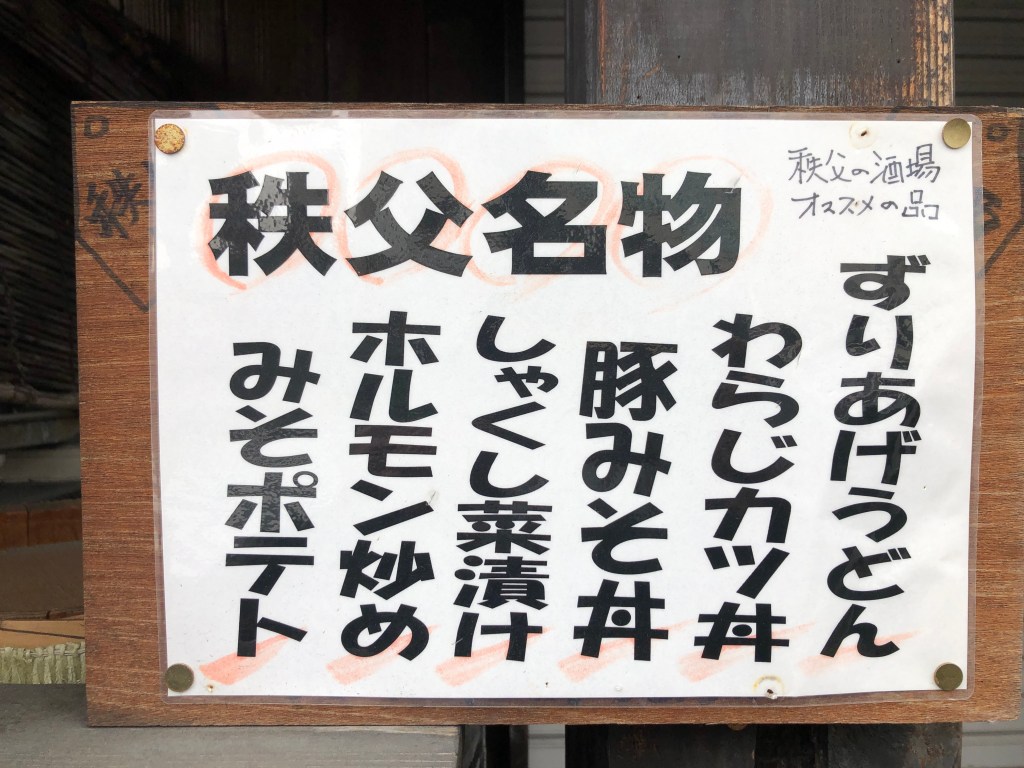 秩父名物
秩父の酒場
オススメの品
ずりあげうどん
わらじカツ丼
豚みそ丼
しゃくし菜漬け
ホルモン炒め
みそポテト